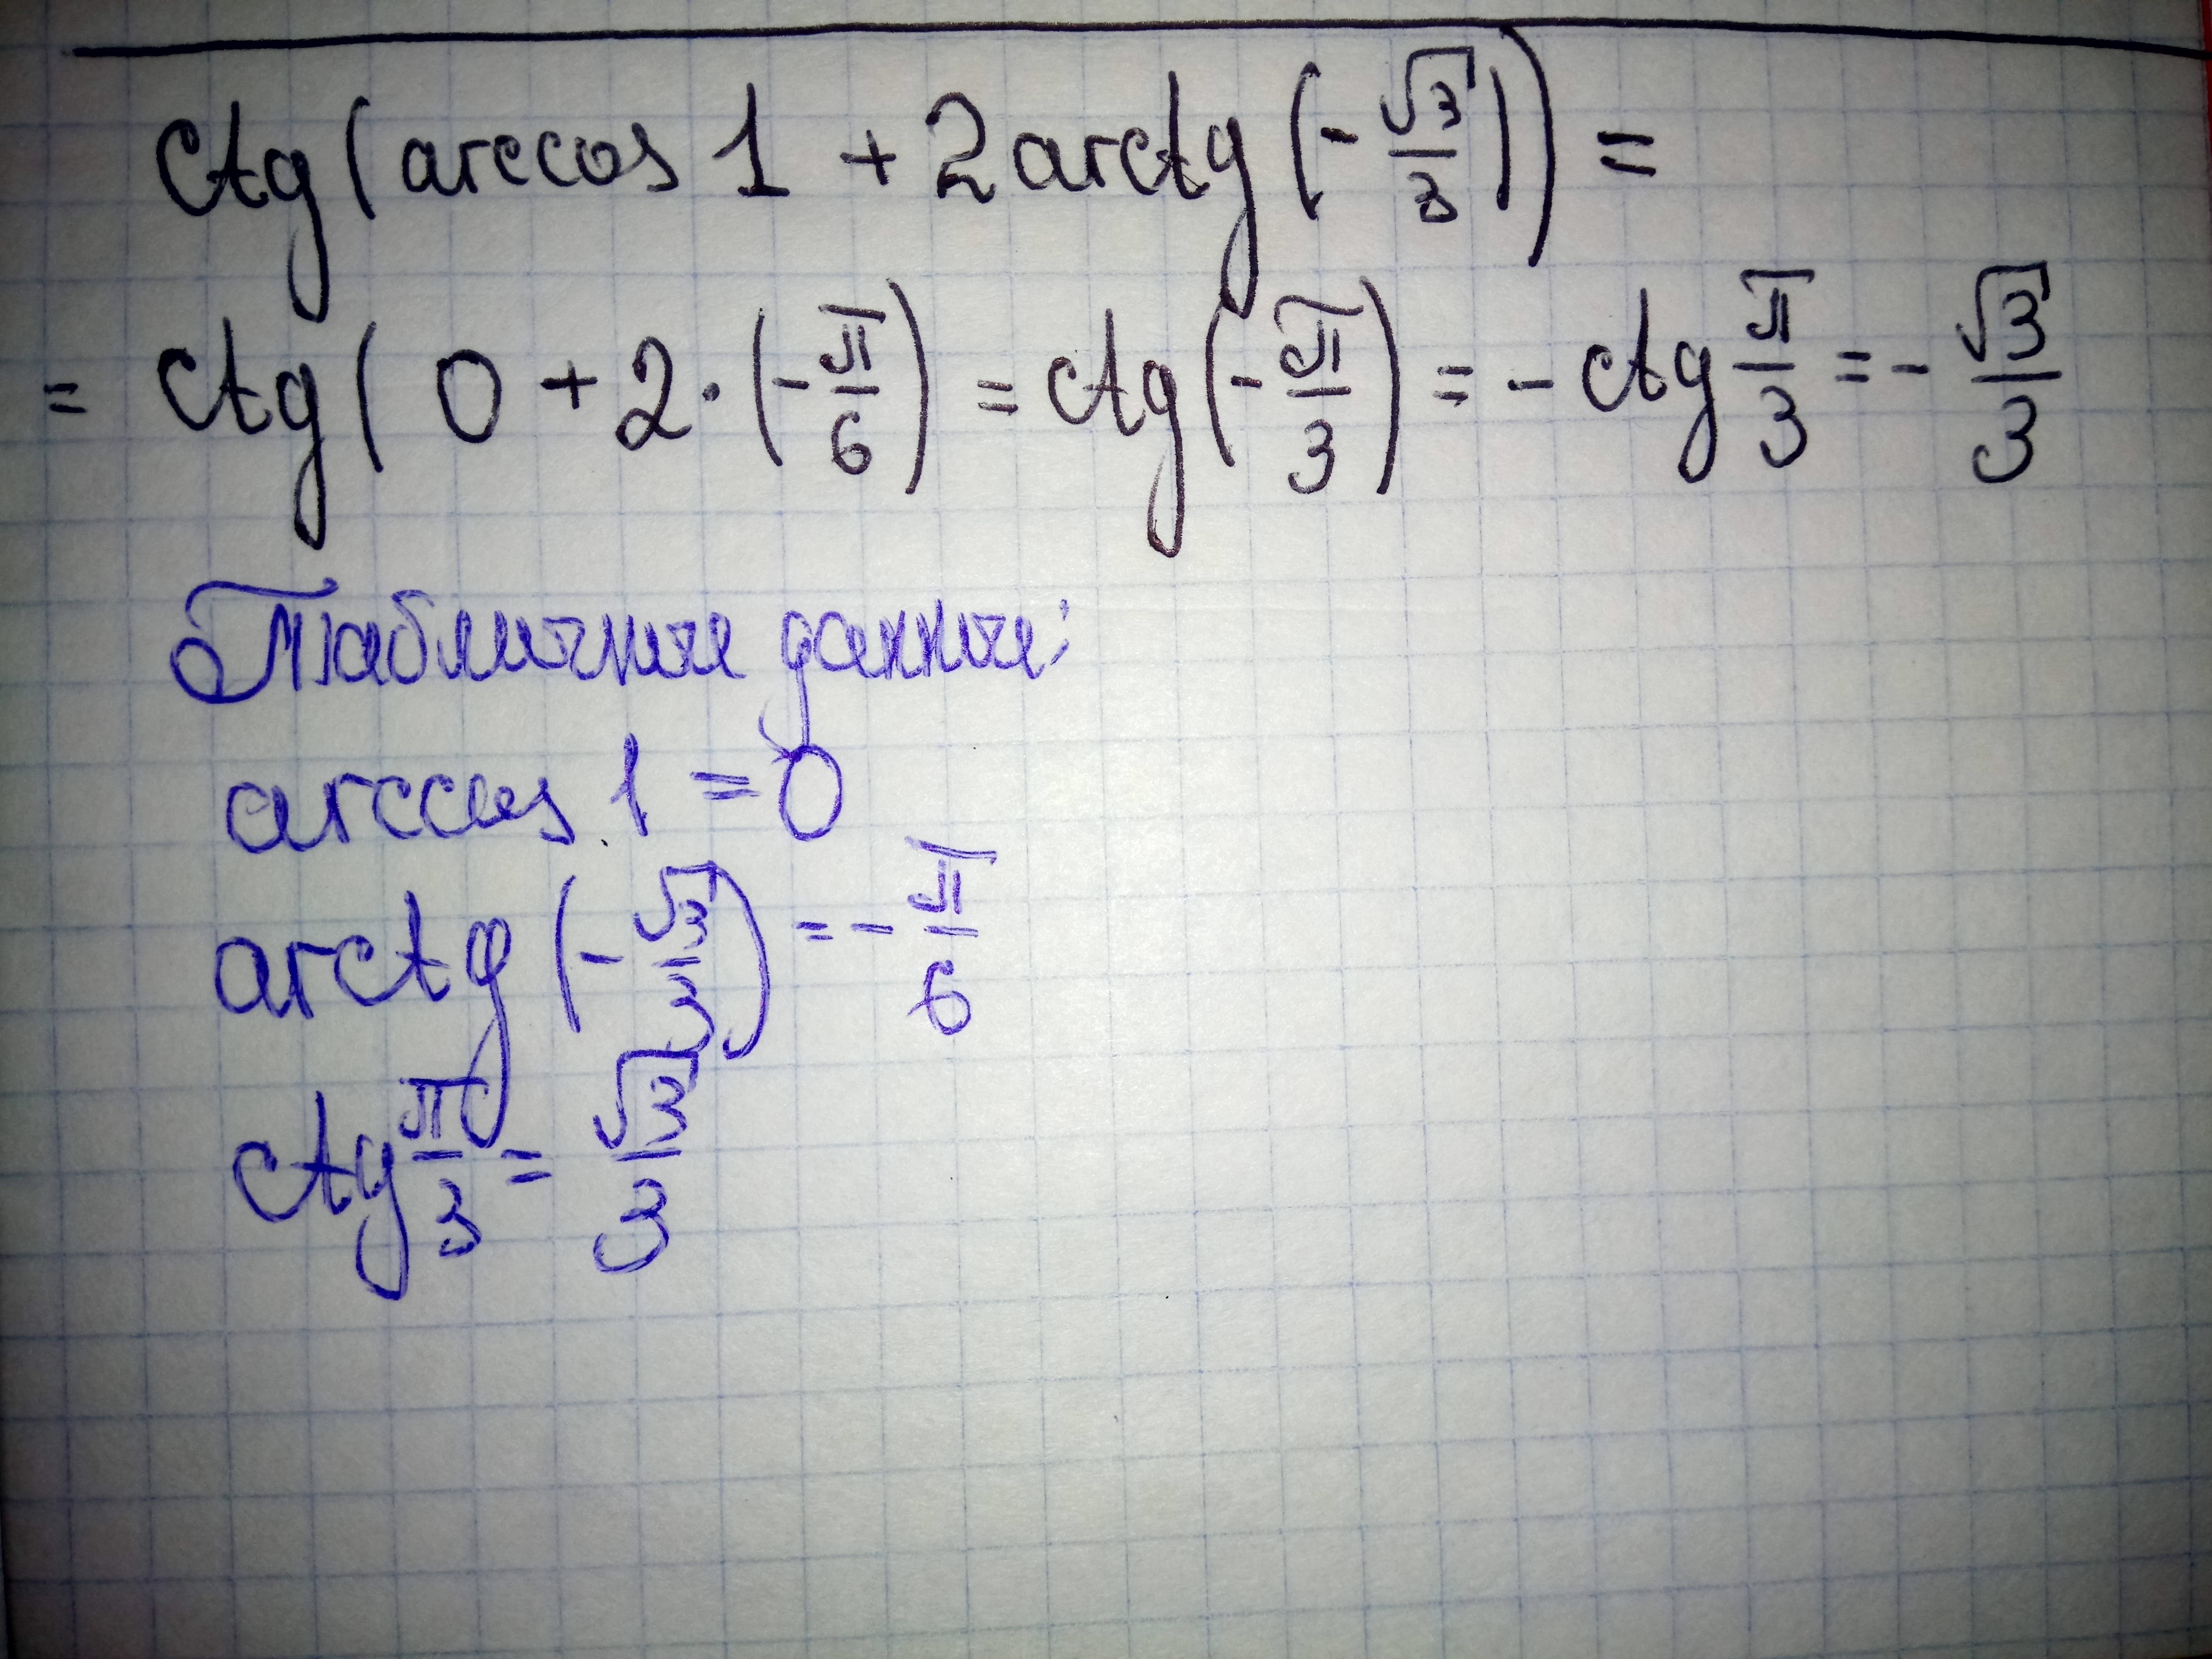 ctg(arccos 1 + 2arctg(-√3/3)) =
= ctg( 0 + 2·(-π/6) = ctg(-π/3) = - ctg π/3 = - √3/3
Табличные данные:
arccos 1 = 0
arctg(-√3/3) = - π/6
ctg π/3 = √3/3